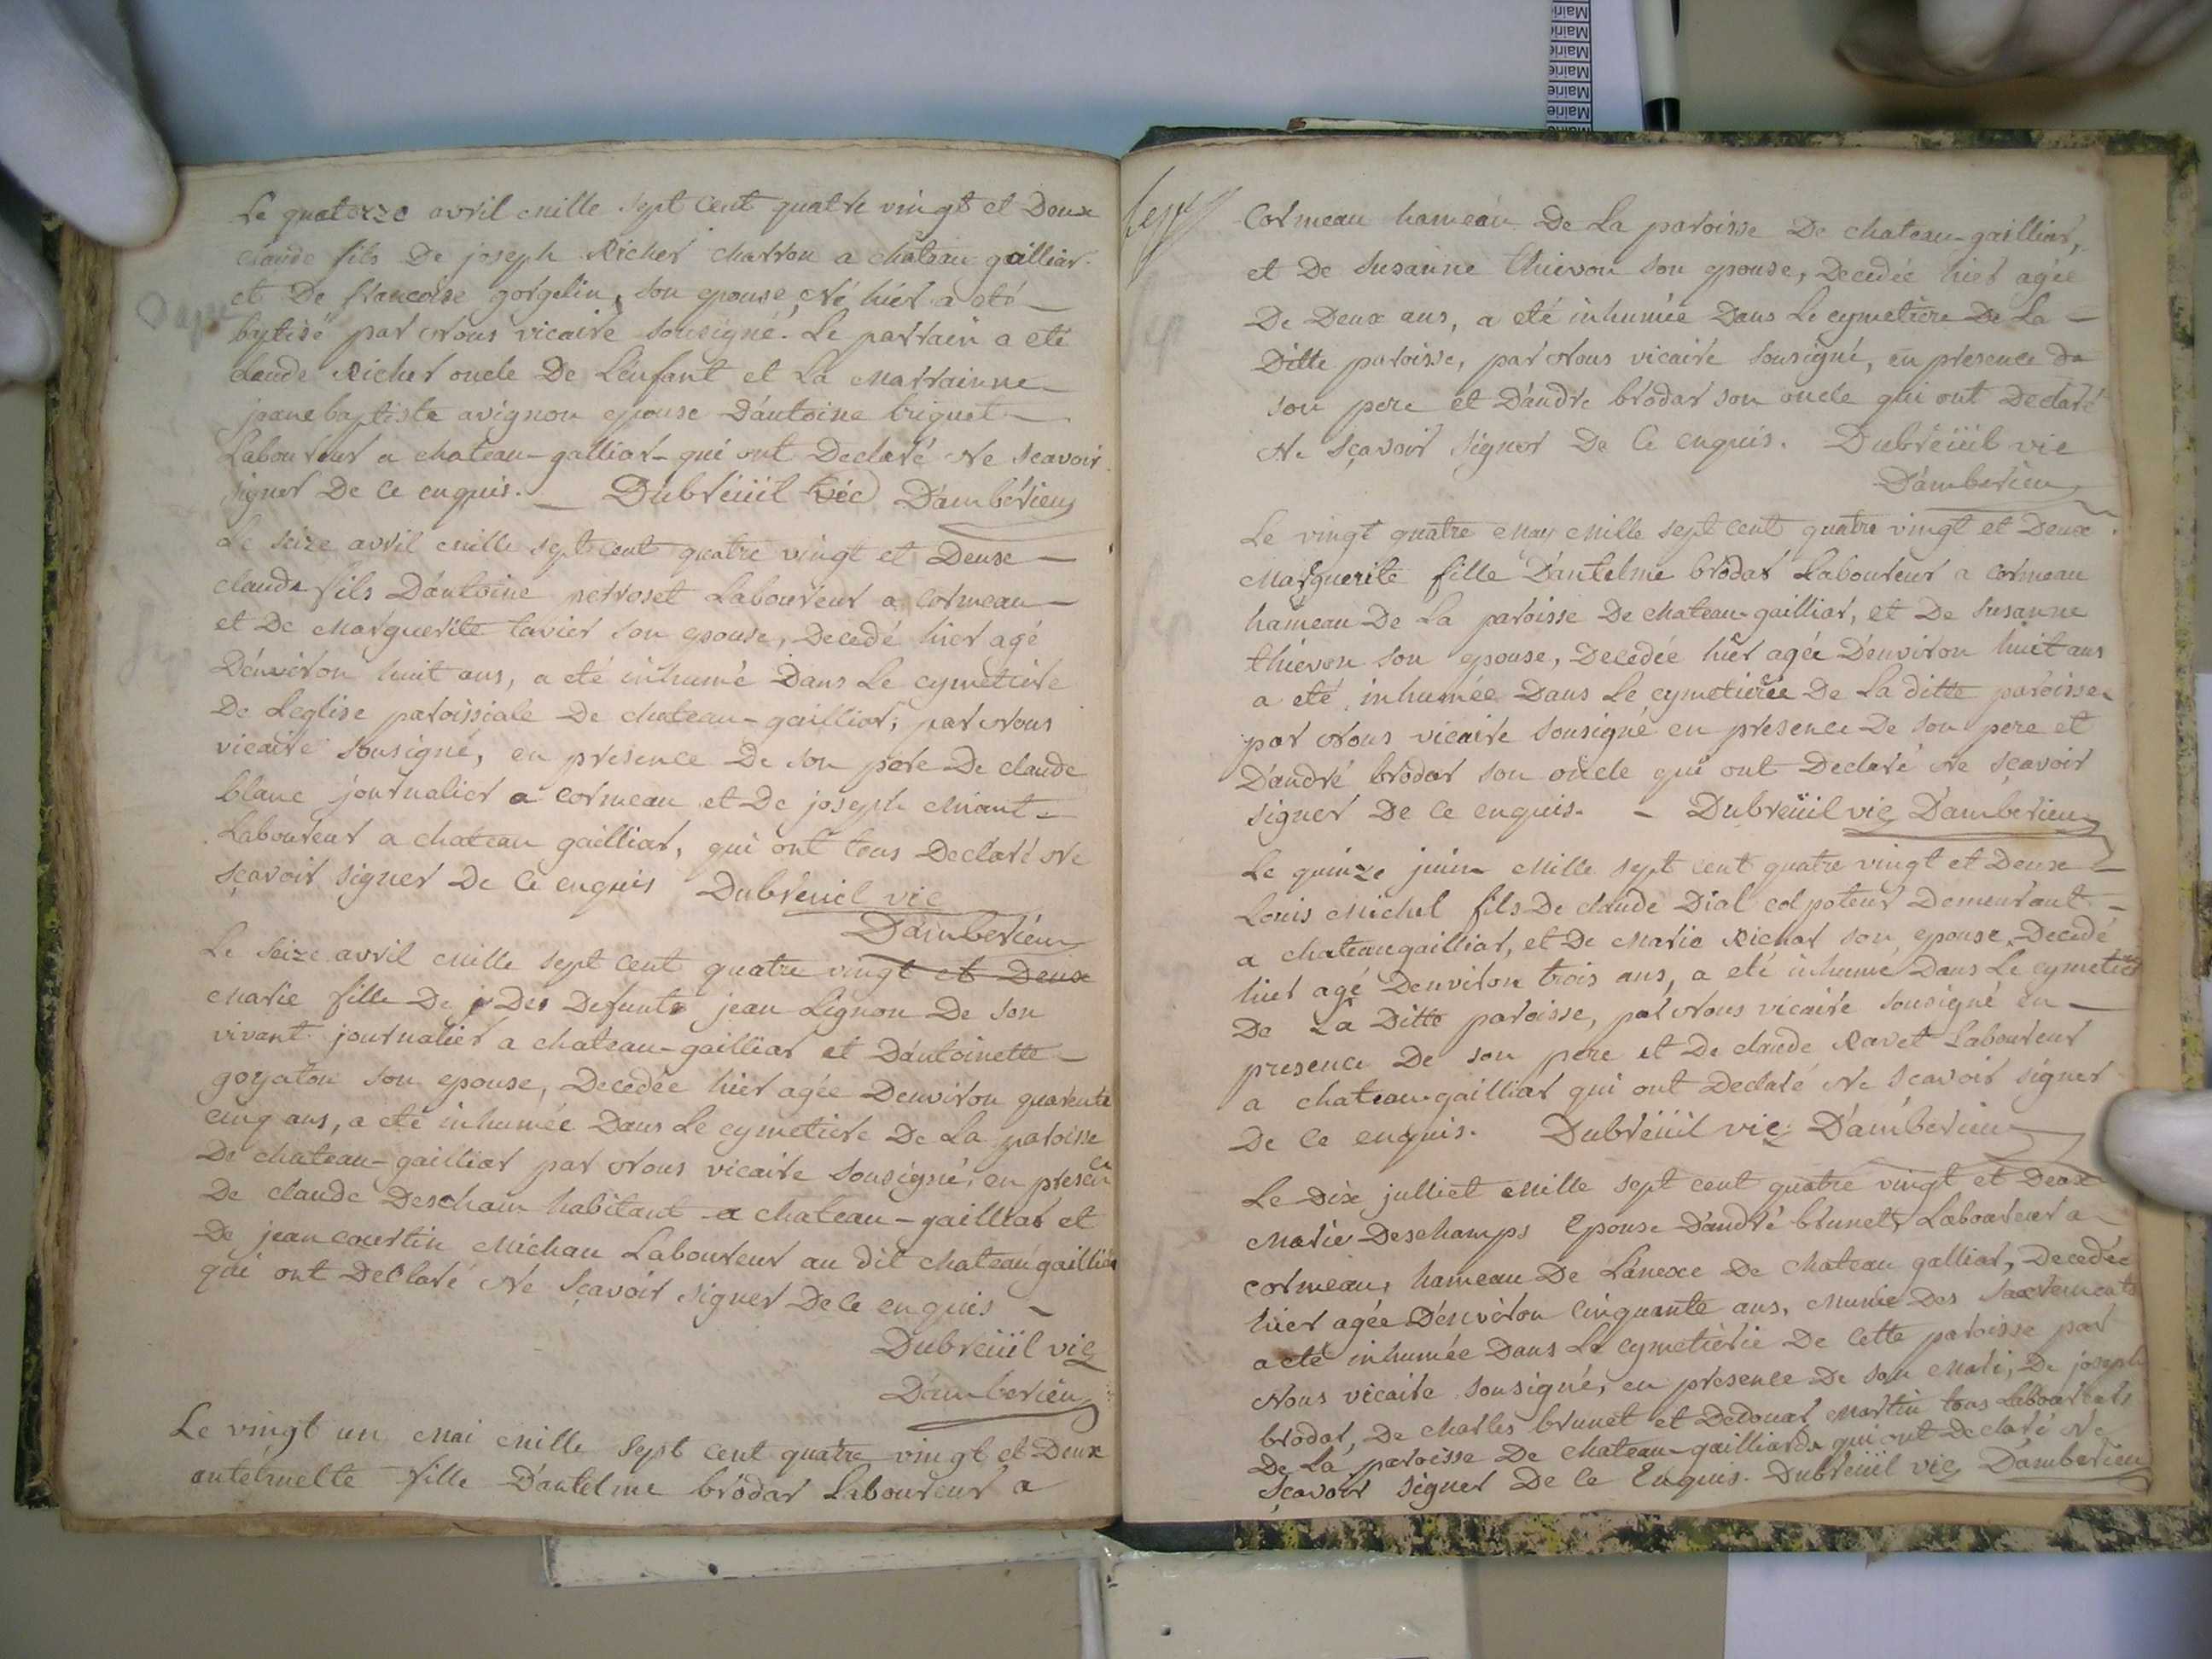 Le quatorze avril mille sept cent quatre vingt et Deux
claude fils De joseph Richer charron a chateau gailliar
et De francoise gorgelin, son epouse, Né hier a eté
bytisé par Nous vicaire sousigné. Le parrain a eté
claude Richer oncle De Lenfant et La Marrainne
jeanebaptiste avignon epouse D'antoine briguet
Laboureur a chateau-galliar qui ont Declaré Ne scavoir
signer De ce enquis. Dubreüil vic D'amberieu
Le seize avril mille sept cent quatre vingt et Deux
claude fils D'antoine perroset Laboureur a cormeau
et De Marguerite tavier son epouse, Decedé hier agé
D'environ huit ans, a eté inhumé Dans Le cymetiere
De Leglise paroissiale De chateau-gailliar, par Nous
vicaire sousigné, en presence De son pere De claude
blanc journalier a cormeau et De joseph Miant
Laboureur a chateau gailliar, qui ont tous Declaré Ne
sçavoir signer De ce enquis Dubreuil vic
D'amberieu
Le seize avril mille sept cent quatre vingt et Deux
Marie fille De j Des Defunts jean Lignon De son
vivant journalier a chateau-gailliar et D'antoinette
goyaton son epouse, Decedée hier agée Denviron quarente
cinq ans, a eté inhumée Dans Le cymetiere De La paroisse
De chateau-gailliar par Nous vicaire sousigné, en presence
De claude Descham habitant a chateau-gailliar et
De jean courtin Michau Laboureur au dit chateau gailliar
qui ont Declaré Ne Sçavoir signer De ce enquis
Dubreüil vic
D'amberieu
Le vingt un Mai Mille Sept cent quatre vingt et Deux
antelmette fille D'antelme brodar Laboureur a
Cormeau hameau De La paroisse De chateau-gailliar,
et De Susanne thievon son epouse, Decedée hier agée
De Deux ans, a eté inhumée Dans Le cymetiere De La
Ditte paroisse, par Nous vicaire sousigné, en presence de
son pere et D'andre brodar son oncle qui ont Declaré
Ne sçavoir signer De ce enquis. Dubreüil vic
D'amberieu
Le vingt quatre May Mille sept cent quatre vingt et Deux
Marguerite fille D'antelme brodar Laboureur a cormeau
hameau De La paroisse De chateau-gailliar, et De Susanne
thievon son epouse, Decedée hier agée D'environ huit ans
a eté inhumée Dans Le cymetierée De La ditte paroisse
par Nous vicaire sousigné en presence De son pere et
D'andré brodar son oncle qui ont Declaré Ne sçavoir
signer De ce enquis. Dubreüil vic D'amberieu
Le quinze juin Mille sept cent quatre vingt et Deux
Louis Michel fils De claude Dial colpoteur Demeurant
a chateaugailliar, et De Marie Richar son epouse, Decedé
hier agé Denviron trois ans, a eté inhumé Dans Le cymetiere
De La Ditte paroisse, par Nous vicaire sousigné en
presence De son pere et De claude Ravet Laboureur
a chateau-gailliar qui ont Declaré Ne Scavoir signer
De ce enquis. Dubreüil vic D'amberieu
Le Dix julliet Mille sept cent quatre vingt et Deux
Marie Deschamps Epouse D'andré brunet, Laboureur a
cormeau, hameau De L'anexe De chateau galliar, Decedée
hier agée D'environ cinquante ans, Munie Des Sacrements
a eté inhumée Dans Le cymetiérie De cette paroisse par
Nous vicaire sousigné, en presence De son Mari, De joseph
brodar, De charles brunet et Dedouar Martin tous Laboureurs
De La paroisse De chateau-gailliarde qui ont Declaré Ne
sçavoir signer De ce Enquis. Dubreüil vic D'amberieu
Mairie
Mairie
Mairie
Mairie
Mairie